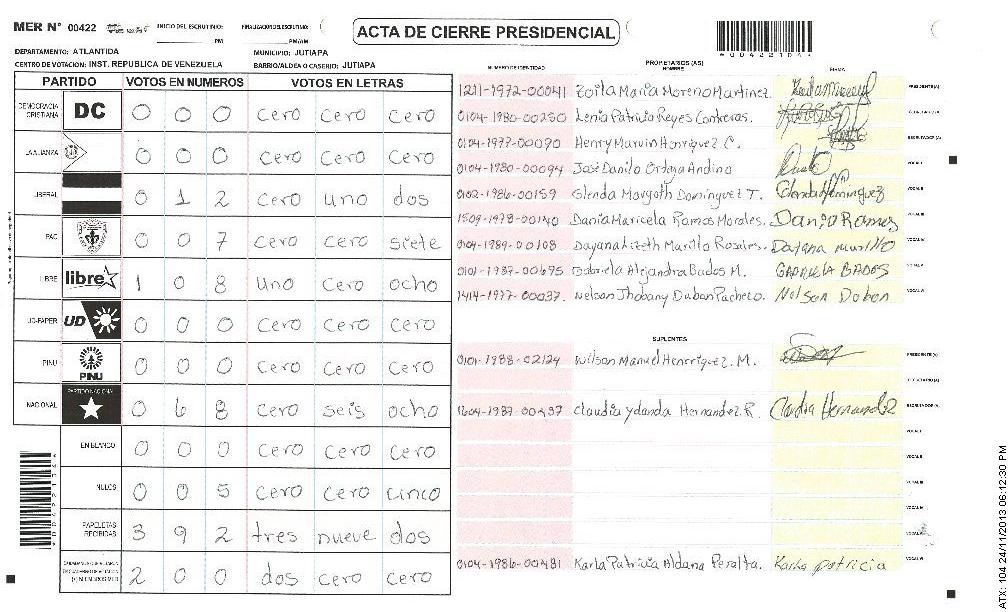 MER N° 00422 INICIO DEL ESCRUTINIO: FINALIZACION DEL ESCRUTINIO:
PM PM/AM
ACTA DE CIERRE PRESIDENCIAL
DEPARTAMENTO: ATLANTIDA MUNICIPIO: JUTIAPA
CENTRO DE VOTACION: INST. REPUBLICA DE VENEZUELA BARRIO/ALDEA O CASERIO: JUTIAPA
PARTIDO VOTOS EN NUMEROS VOTOS EN LETRAS
DEMOCRACIA CRISTIANA DC 0 0 0 cero cero cero
LA ALIANZA 0 0 0 cero cero cero
LIBERAL 0 1 2 cero uno dos
PAC 0 0 7 cero cero siete
LIBRE libre 1 0 8 uno cero ocho
UD-FAPER UD 0 0 0 cero cero cero
PINU PINU 0 0 0 cero cero cero
NACIONAL PARTIDO NACIONAL 0 6 8 cero seis ocho
EN BLANCO 0 0 0 cero cero cero
NULOS 0 0 5 cero cero cinco
PAPELETAS RECIBIDAS 3 9 2 tres nueve dos
2 0 0 dos cero cero
NUMERO DE IDENTIDAD PROPIETARIOS (AS) NOMBRE FIRMA
1211-1972-00041 Zoila Maria Moreno Martinez. PRESIDENTE(A)
0104-1980-00250 Lenia Patricia Reyes Contreras. SECRETARIO(A)
0104-1977-00090 Henry Marvin Henriquez C. ESCRUTADOR(A)
0104-1980-00094 José Danilo Ordoga Andino VOCAL I
0102-1986-00159 Glenda Margoth Dominguez T. Glenda Dominguez VOCAL II
1509-1978-00140 Dania Maricela Ramos Morales. Dania Ramos VOCAL III
0104-1989-00108 Dayana Lizeth Murillo Rosales. Dayana murillo VOCAL IV
0101-1987-00695 Gabriela Alejandra Bados M. GABRIELA BADOS VOCAL V
1414-1977-00037. Nelson Jhobany Dubon Pacheco. Nelson Dubon VOCAL VI
SUPLENTES
0101-1988-02124 Wilson Manuel Henrriquez. M. PRESIDENTE(A)
SECRETARIO(A)
1604-1987-00437 Claudia Ydanda Hernandez. R. Claudia Hernandez ESCRUTADOR(A)
VOCAL I
VOCAL II
VOCAL III
VOCAL IV
VOCAL V
0104-1986-00481 Karla Patricia Aldana Peralta. Karla patricia VOCAL VI
ATX: 104 24/11/2013 06:12:30 PM